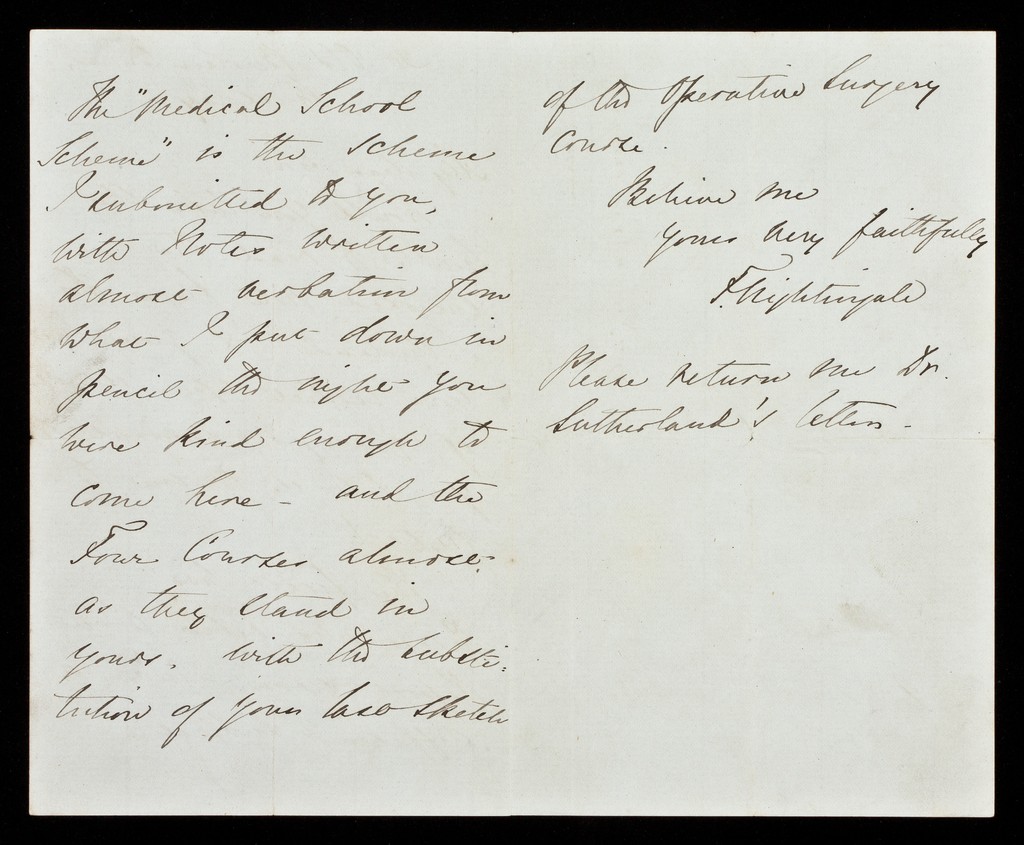 The "Medical School
Scheme" is the scheme
I submitted to you,
with Notes written
almost verbatim from
what I put down in
pencil the night you
were kind enough to
come here - and the
Four Courses almost
as they stand in
yours, with the substi:
tution of your last sketch
of the Operative Surgery
Course.
Believe me
yours very faithfully
F. Nightingale
Please return me Dr.
Sutherland's letters -